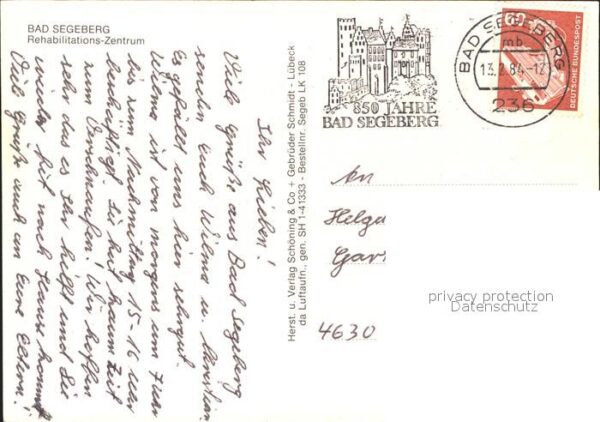 BAD SEGEBERG
Rehabilitations-Zentrum
Ihr Lieben!
Viele Grüße aus Bad Segeberg
senden Euch Wilma u. Christian
Es gefällt uns hier sehr gut.
Wilma ist von morgens um 7 uhr
bis zum Nachmittag 15-16 uhr
beschäftigt. Sie hat kaum Zeit
zum Verschnaufen. Wir hoffen
sehr das es Ihr hilft und Sie
wieder fit nach Hause kommt
Viele Grüße auch an Eure Eltern!
Herst. u. Verlag Schöning & Co + Gebrüder Schmidt - Lübeck
da Luftaufn., gen. SH 1-41333 - Bestellnr. Segeb LK 108
850 JAHRE
BAD SEGEBERG
BAD SEGEBERG
mb
13.2.84-12
236
60
DEUTSCHE BUNDESPOST
An
Helga
Gar
4630
privacy protection
Datenschutz